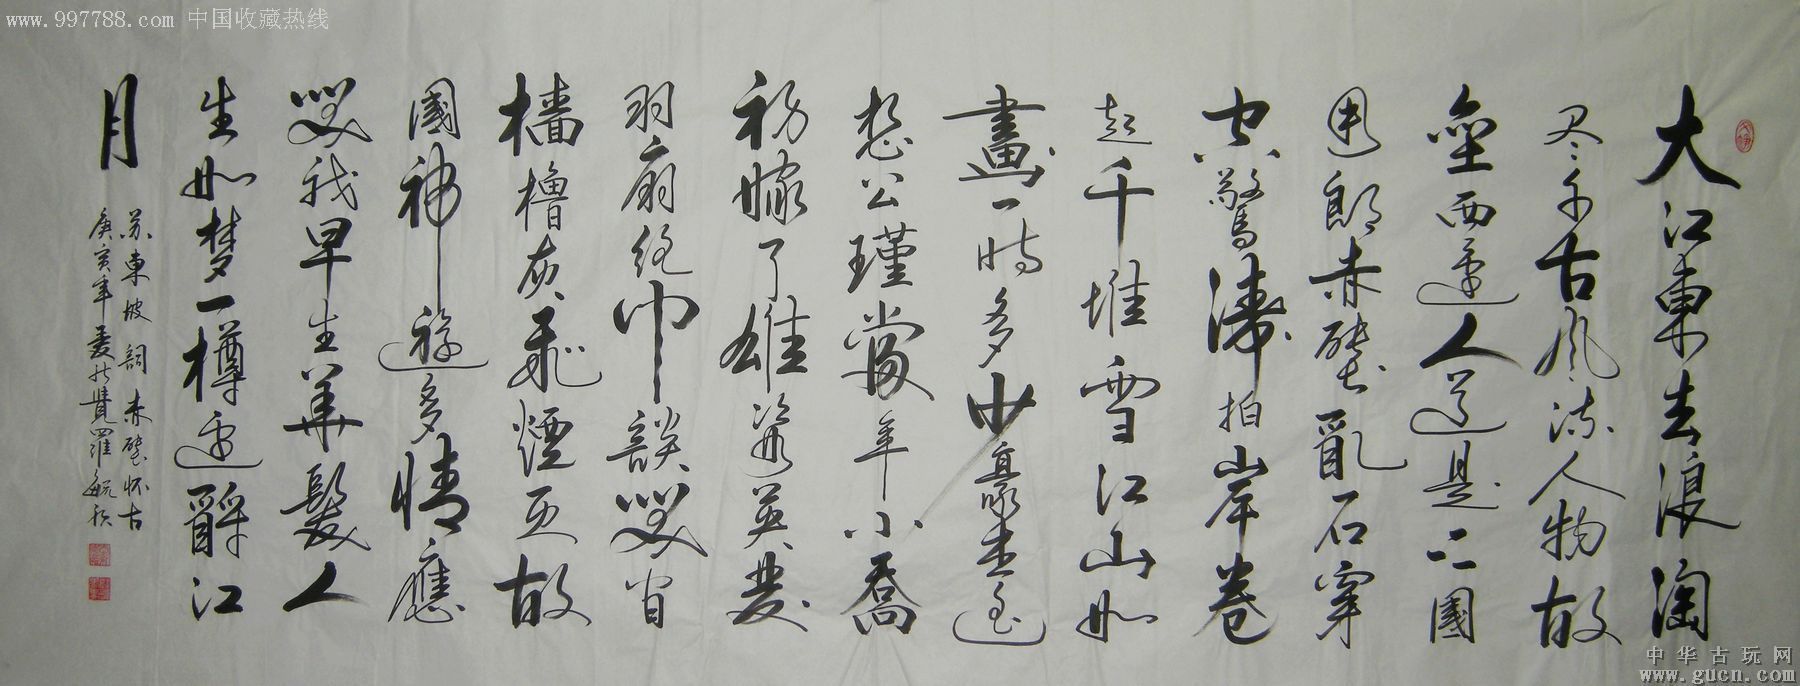 www.997788.com 中国收藏热线
大江東去浪淘
尽千古風流人物故
壘西邊人道是三國
周郎赤壁亂石穿
空驚濤拍岸卷
起千堆雪江山如
畫一時多少豪杰遥
想公瑾當年小喬
初嫁了雄姿英發
羽扇綸巾談笑間
檣櫓灰飛煙灭故
國神遊多情應
笑我早生華髮人
生如梦一樽還酹江
月
苏東坡詞赤壁怀古
庚寅年爱新覺羅毓
中华古玩网
www.gucn.com